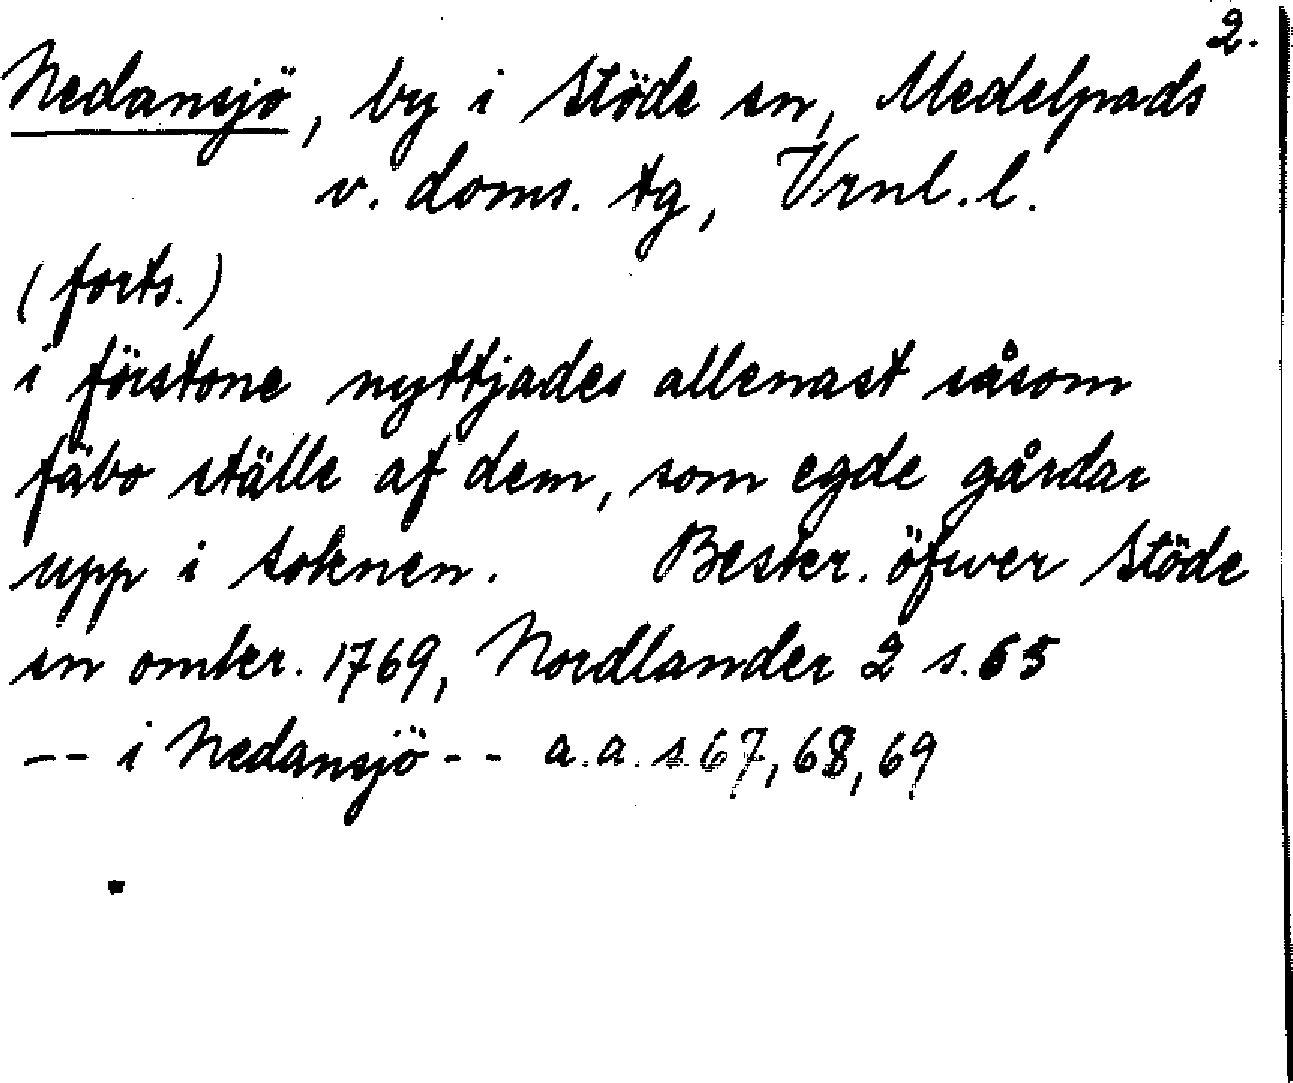 2.
Nedansjö, by i Stöde sn, Medelpads
v. doms. tg, Vrnl. l.
(forts.)
i förstone nyttjades allenast såsom
fäbo ställe af dem, som egde gårdar
upp i soknen. Beskr. öfwer Stöde
sn omkr. 1769, Nordlander 2 s. 65
-- i Nedansjö -- a. a. s 67, 68, 69